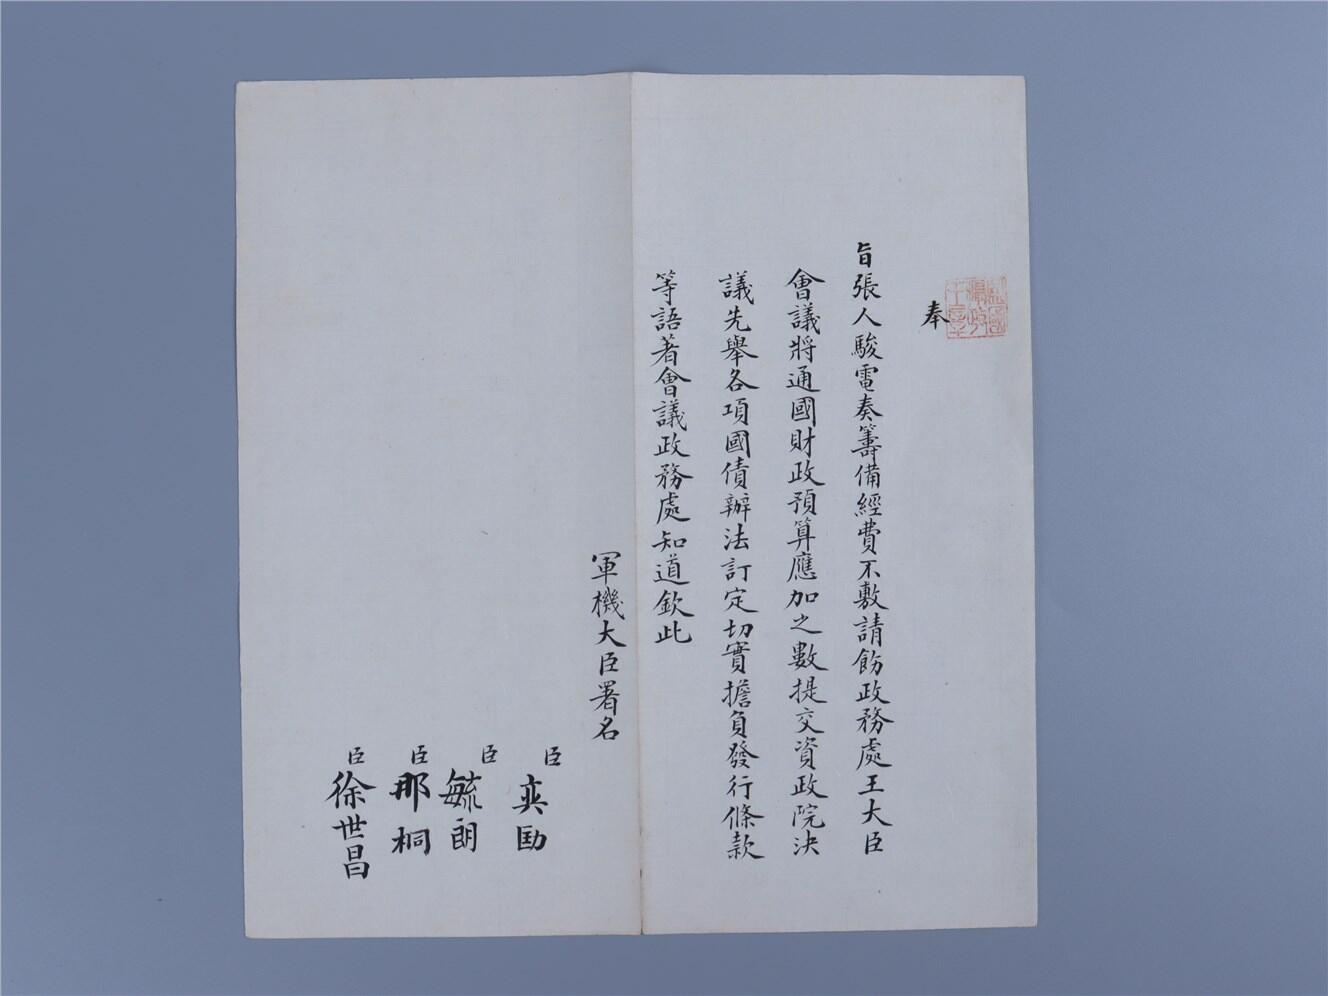 奉
旨張人駿電奏籌備經費不敷請飭政務處王大臣
會議將通國財政預算應加之數提交資政院決
議先舉各項國債辦法訂定切實擔負發行條款
等語著會議政務處知道欽此
軍機大臣署名
臣奕劻
臣毓朗
臣那桐
臣徐世昌